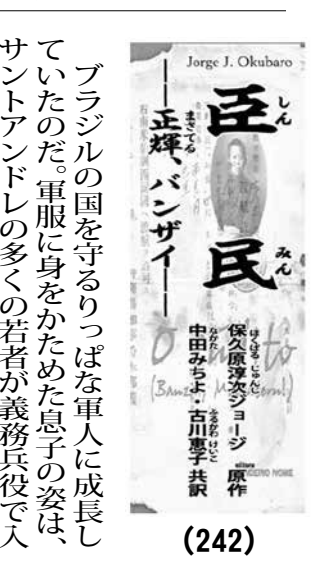 Jorge J. Okubaro
臣民
しん
みん
――正輝、バンザイ――
まさてる
保久原淳次ジョージ 原作
ほくばる・じゅんじ
中田みちよ・古川恵子 共訳
なかた
ふるかわ けいこ
(242)
ブラジルの国を守るりっぱな軍人に成長し
ていたのだ。軍服に身をかためた息子の姿は、
サントアンドレの多くの若者が義務兵役で入